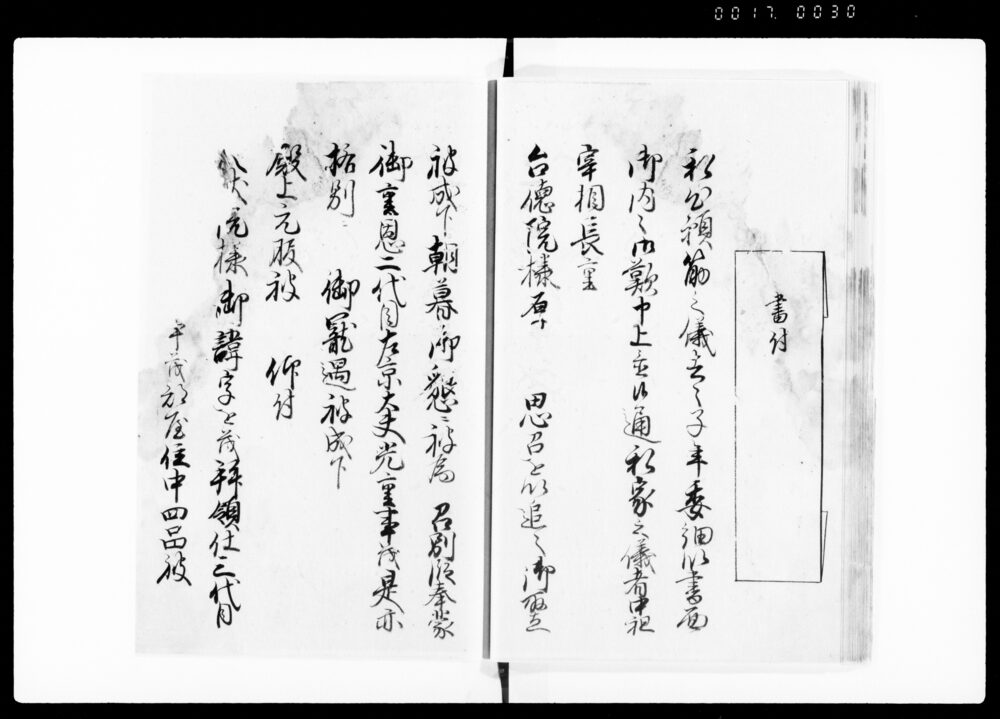 0017 0030
書付
私公願筋之儀去ル子年委細以書面
御内々御歎申上置候通私家之儀者中祖
宰相長重
台徳院様 思召を以追々御取立
被成下朝暮御懇ニ被為 召別段奉蒙
御重恩二代目左京大夫光重事茂是亦
格別ニ 御寵遇被成下
殿上元服被 仰付
大猷院様御諱字を茂拝領仕三代目
茂部屋住中四品被